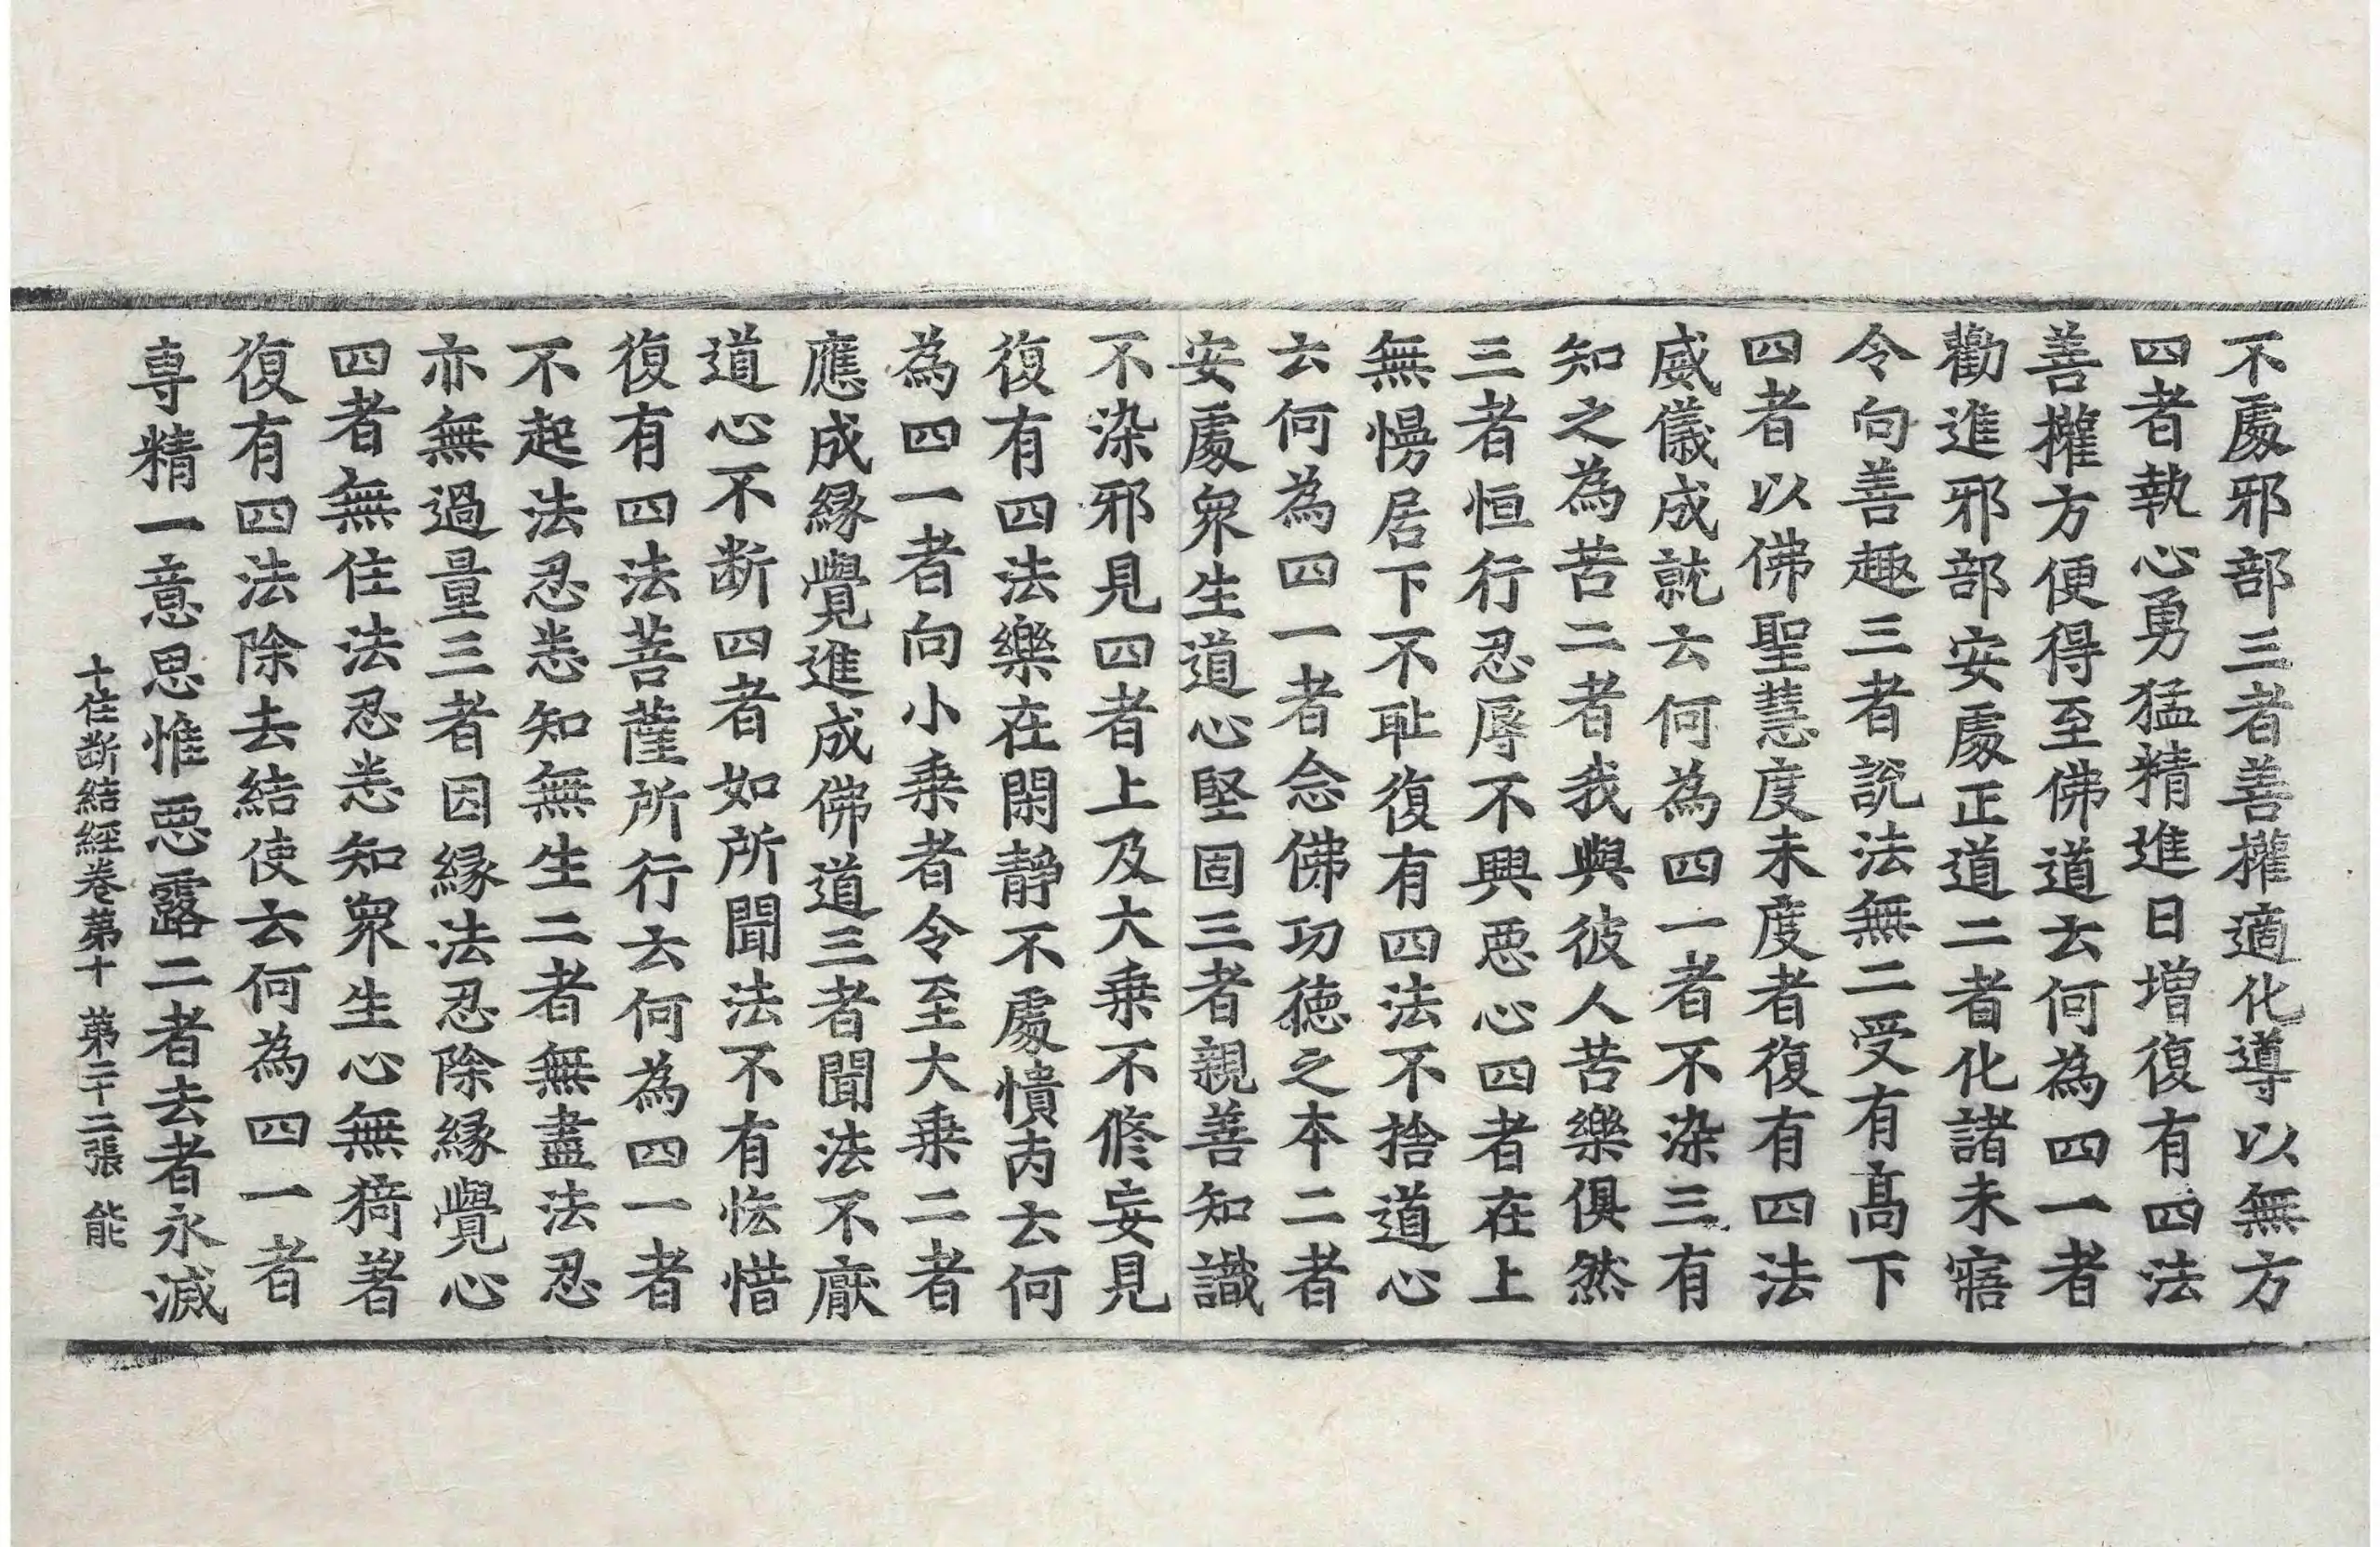 不處邪部三者善權適化導以無方
四者執心勇猛精進日增復有四法
善權方便得至佛道云何為四一者
勸進邪部安處正道二者化諸未寤
令向善趣三者說法無二受有髙下
四者以佛聖慧度未度者復有四法
威儀成就云何為四一者不染三有
知之為苦二者我與彼人苦樂俱然
三者恒行忍辱不興惡心四者在上
無慢居下不恥復有四法不捨道心
云何為四一者念佛功德之本二者
安處衆生道心堅固三者親善知識
不染邪見四者上及大乗不脩妄見
復有四法樂在閑靜不處憒丙云何
為四一者向小乗者令至大乗二者
應成縁覺進成佛道三者聞法不厭
道心不断四者如所聞法不有悋惜
復有四法菩薩所行云何為四一者
不起法忍悉知無生二者無盡法忍
亦無過量三者因縁法忍除縁覺心
四者無住法忍悉知衆生心無猗著
復有四法除去結使云何為四一者
専精一意思惟惡露二者去者永滅
十住断結經卷第十 第二十二張 能